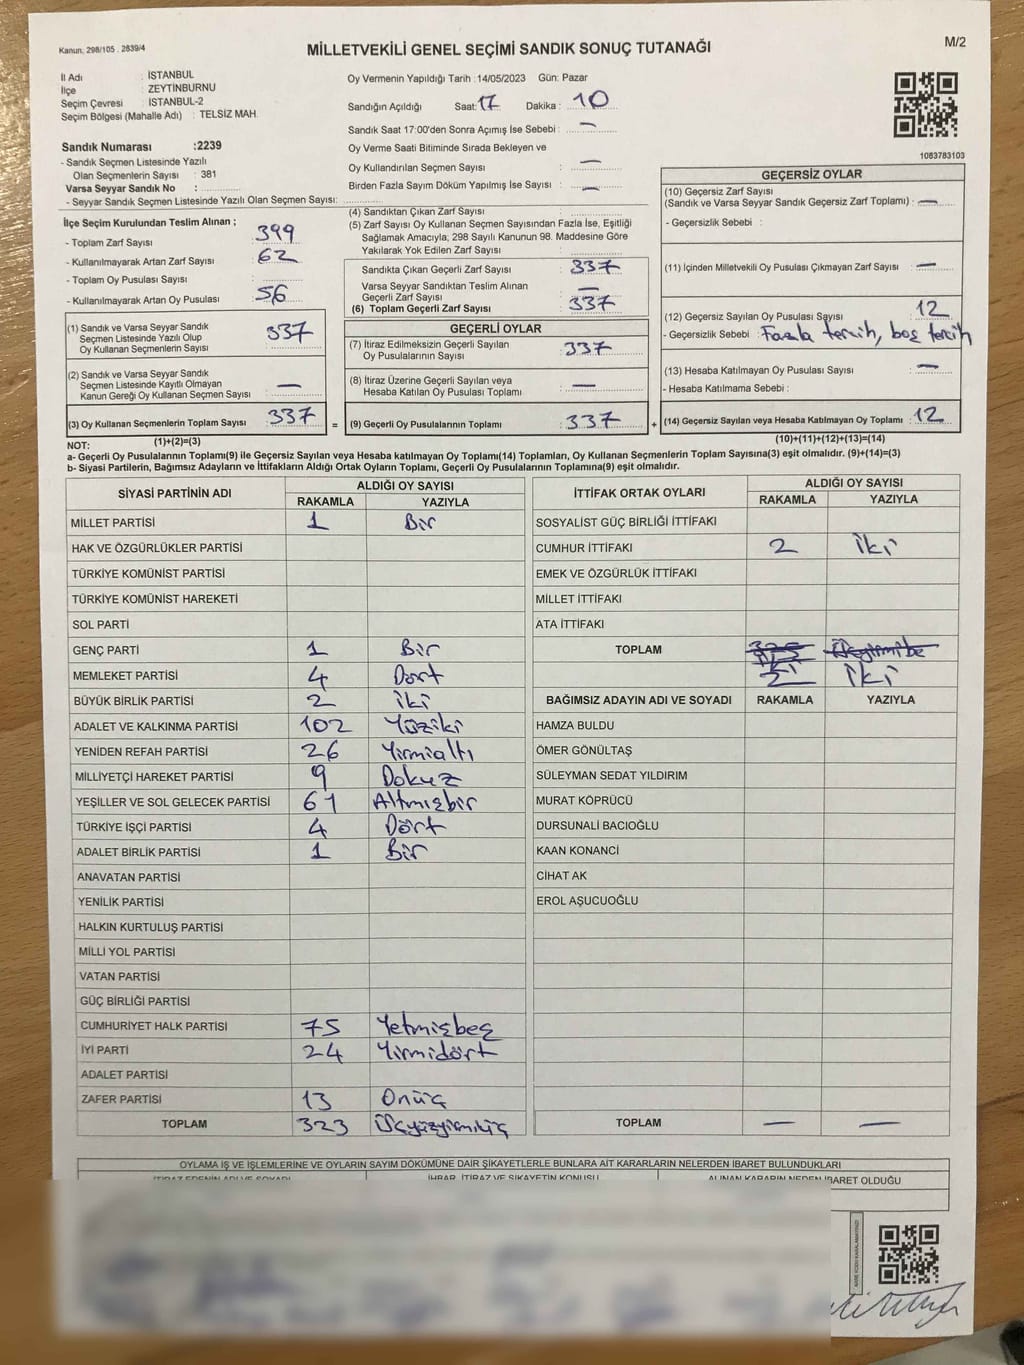 Kanun: 298/105 . 2839/4
MİLLETVEKİLİ GENEL SEÇİMİ SANDIK SONUÇ TUTANAĞI
M/2
İl Adı : İSTANBUL
İlçe : ZEYTİNBURNU
Seçim Çevresi : İSTANBUL-2
Seçim Bölgesi (Mahalle Adı) : TELSİZ MAH.
Oy Vermenin Yapıldığı Tarih :14/05/2023 Gün: Pazar
Sandığın Açıldığı Saat: 17 Dakika : 10
Sandık Saat 17:00'den Sonra Açımış İse Sebebi : —
Oy Verme Saati Bitiminde Sırada Bekleyen ve
Oy Kullandırılan Seçmen Sayısı : —
Birden Fazla Sayım Döküm Yapılmış İse Sayısı : —
1083783103
Sandık Numarası :2239
- Sandık Seçmen Listesinde Yazılı
Olan Seçmenlerin Sayısı : 381
Varsa Seyyar Sandık No :
- Seyyar Sandık Seçmen Listesinde Yazılı Olan Seçmen Sayısı:
İlçe Seçim Kurulundan Teslim Alınan ;
- Toplam Zarf Sayısı 399
- Kullanılmayarak Artan Zarf Sayısı : 62
- Toplam Oy Pusulası Sayısı :
- Kullanılmayarak Artan Oy Pusulası : 56
(1) Sandık ve Varsa Seyyar Sandık
Seçmen Listesinde Yazılı Olup
Oy Kullanan Seçmenlerin Sayısı : 337
(2) Sandık ve Varsa Seyyar Sandık
Seçmen Listesinde Kayıtlı Olmayan
Kanun Gereği Oy Kullanan Seçmen Sayısı : —
(3) Oy Kullanan Seçmenlerin Toplam Sayısı : 337
(1)+(2)=(3)
(4) Sandıktan Çıkan Zarf Sayısı :
(5) Zarf Sayısı Oy Kullanan Seçmen Sayısından Fazla İse, Eşitliği
Sağlamak Amacıyla; 298 Sayılı Kanunun 98. Maddesine Göre
Yakılarak Yok Edilen Zarf Sayısı :
Sandıkta Çıkan Geçerli Zarf Sayısı : 337
Varsa Seyyar Sandıktan Teslim Alınan
Geçerli Zarf Sayısı : —
(6) Toplam Geçerli Zarf Sayısı : 337
GEÇERLİ OYLAR
(7) İtiraz Edilmeksizin Geçerli Sayılan
Oy Pusulalarının Sayısı : 337
(8) İtiraz Üzerine Geçerli Sayılan veya
Hesaba Katılan Oy Pusulası Toplamı : —
= (9) Geçerli Oy Pusulalarının Toplamı : 337
GEÇERSİZ OYLAR
(10) Geçersiz Zarf Sayısı
(Sandık ve Varsa Seyyar Sandık Geçersiz Zarf Toplamı) : —
- Geçersizlik Sebebi :
(11) İçinden Milletvekili Oy Pusulası Çıkmayan Zarf Sayısı : —
(12) Geçersiz Sayılan Oy Pusulası Sayısı : 12
- Geçersizlik Sebebi : Fazla tercih, boş tercih
(13) Hesaba Katılmayan Oy Pusulası Sayısı : —
- Hesaba Katılmama Sebebi :
+ (14) Geçersiz Sayılan veya Hesaba Katılmayan Oy Toplamı : 12
(10)+(11)+(12)+(13)=(14)
NOT:
a- Geçerli Oy Pusulalarının Toplamı(9) ile Geçersiz Sayılan veya Hesaba katılmayan Oy Toplamı(14) Toplamları, Oy Kullanan Seçmenlerin Toplam Sayısına(3) eşit olmalıdır. (9)+(14)=(3)
b- Siyasi Partilerin, Bağımsız Adayların ve İttifakların Aldığı Ortak Oyların Toplamı, Geçerli Oy Pusulalarının Toplamına(9) eşit olmalıdır.
SİYASİ PARTİNİN ADI ALDIĞI OY SAYISI
RAKAMLA YAZIYLA
MİLLET PARTİSİ 1 Bir
HAK VE ÖZGÜRLÜKLER PARTİSİ
TÜRKİYE KOMÜNİST PARTİSİ
TÜRKİYE KOMÜNİST HAREKETİ
SOL PARTİ
GENÇ PARTİ 1 Bir
MEMLEKET PARTİSİ 4 Dört
BÜYÜK BİRLİK PARTİSİ 2 iki
ADALET VE KALKINMA PARTİSİ 102 Yüziki
YENİDEN REFAH PARTİSİ 26 Yirmialtı
MİLLİYETÇİ HAREKET PARTİSİ 9 Dokuz
YEŞİLLER VE SOL GELECEK PARTİSİ 61 Altmışbir
TÜRKİYE İŞÇİ PARTİSİ 4 Dört
ADALET BİRLİK PARTİSİ 1 Bir
ANAVATAN PARTİSİ
YENİLİK PARTİSİ
HALKIN KURTULUŞ PARTİSİ
MİLLİ YOL PARTİSİ
VATAN PARTİSİ
GÜÇ BİRLİĞİ PARTİSİ
CUMHURİYET HALK PARTİSİ 75 Yetmişbeş
İYİ PARTİ 24 Yirmidört
ADALET PARTİSİ
ZAFER PARTİSİ 13 Onüç
TOPLAM 323 Üçyüzyirmiüç
İTTİFAK ORTAK OYLARI ALDIĞI OY SAYISI
RAKAMLA YAZIYLA
SOSYALİST GÜÇ BİRLİĞİ İTTİFAKI
CUMHUR İTTİFAKI 2 iki
EMEK VE ÖZGÜRLÜK İTTİFAKI
MİLLET İTTİFAKI
ATA İTTİFAKI
TOPLAM
2 iki
BAĞIMSIZ ADAYIN ADI VE SOYADI RAKAMLA YAZIYLA
HAMZA BULDU
ÖMER GÖNÜLTAŞ
SÜLEYMAN SEDAT YILDIRIM
MURAT KÖPRÜCÜ
DURSUNALİ BACIOĞLU
KAAN KONANCİ
CİHAT AK
EROL AŞUCUOĞLU
TOPLAM — —
OYLAMA İŞ VE İŞLEMLERİNE VE OYLARIN SAYIM DÖKÜMÜNE DAİR ŞİKAYETLERLE BUNLARA AİT KARARLARIN NELERDEN İBARET BULUNDUKLARI
İTİRAZ EDENİN ADI VE SOYADI İHBAR, İTİRAZ VE ŞİKAYETİN KONUSU ALINAN KARARIN NEDEN İBARET OLDUĞU